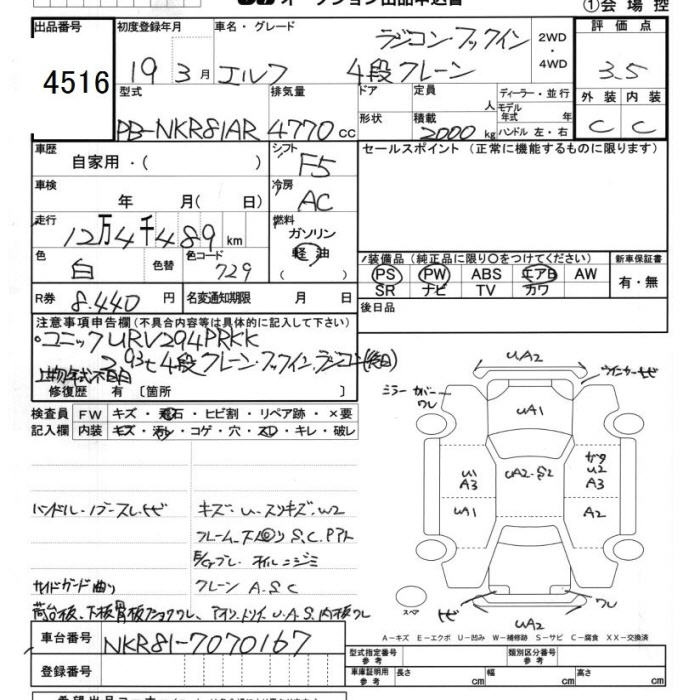 オークション出品申込書 ①会場控
出品番号 初度登録年月 車名・グレード 評価点
4516 19年3月 エルフ ラジコン・フックイン 4段クレーン 2WD・4WD 3.5
型式 排気量 ドア 定員 人 ディーラー・並行 外装 内装
PB-NKR81AR 4770cc 形状 積載 2000kg モデル年式 年 ハンドル 左・右 C C
車歴 自家用・( ) シフト F5 セールスポイント (正常に機能するものに限ります)
車検 年 月( 日) 冷房 AC
走行 12万4千489km 燃料 ガソリン
軽油
( )
色 白 色替 色コード 729 装備品 (純正品に限り○をつけてください) 新車保証書
PS PW ABS エアB AW 有・無
SR ナビ TV カワ
R券 8.440円 名変通知期限 月 日 後日品
注意事項申告欄 (不具合内容等は具体的に記入して下さい)
○ユニックURV294PRKK
2.93t 4段クレーン・フックイン、ラジコン(後日)
上物年式不明
修復歴 有 〔箇所 〕
検査員記入欄 FW キズ・飛石・ヒビ割・リペア跡・×要
内装 キズ・汚レ・コゲ・穴・スレ・キレ・破レ
UA2
ウインカーヒビ
ミラーカバーワレ
UA1
UA2.S2
A3
UA1
U2
A3
A2
ハンドル・ハブースレ.ヒビ キズ・U・スリキズ.W2
フレーム.下廻り S.C.Pアト
オルニジミ
サイドガード曲り クレーン A.S.C
U.A.S
スペア
ヒビ
ワレ
UA2
A-キズ E-エクボ U-凹み W-補修跡 S-サビ C-腐食 XX-交換済
車台番号 NKR81-7070167
型式指定番号 参考 類別区分番号 参考
登録番号 車庫証明用 参考 長さ cm 幅 cm 高さ cm